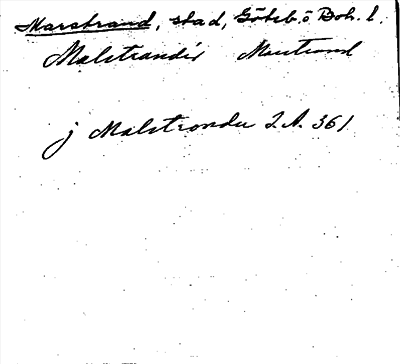 Marstrand, stad, Göteb. o Boh. l.
Malstrandir Mastrand
j Malstrondu 2 A. 361